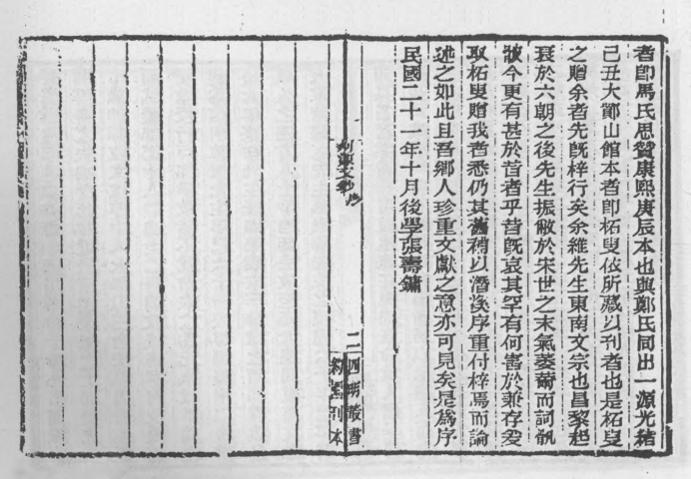 者卽馬氏思贊康熙庚辰本也與鄭氏同出一源光緒
己丑大鄮山館本者卽柘叟依所藏以刊者也是柘叟
之贈余者先旣梓行矣余維先生東南文宗也昌黎起
衰於六朝之後先生振敝於宋世之末氣萎薾而詞骫
骳今更有甚於昔者乎昔旣哀其罕有何害於兼存爰
取柘叟贈我者悉仍其舊稍以潛溪序重付梓焉而論
述之如此且吾鄉人珍重文獻之意亦可見矣是爲序
民國二十一年十月後學張壽鏞
剡源文鈔 序
二
四明叢書
約園刊本